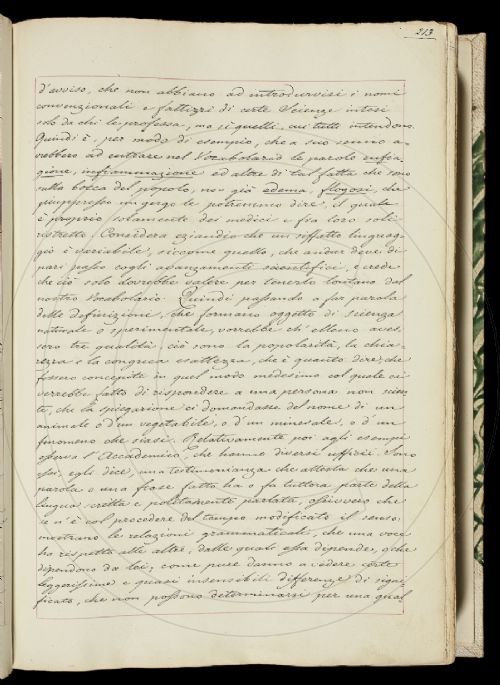 213
d'avviso, che non abbiano ad introdurvisi i nomi
convenzionali e fattizzi di certe Scienze intesi
sol da chi le professa, ma sì quelli, cui tutti intendono.
Quindi è, per modo di esempio, che a suo senno a-
vrebbero ad entrare nel Vocabolario le parole enfia-
gione, infiammazione ed altre di tal fatta che sono
sulla bocca del popolo, non già edema, flogosi, che
piuttosto un gergo le potremmo dire, il quale
è proprio solamente dei medici e fra loro soli
ristretto. Considera eziandio che un siffatto linguag-
gio è variabile, siccome quello, che andar deve di
pari passo cogli avanzamenti scientifici, e crede
che ciò solo dovrebbe valere per tenerlo lontano dal
nostro Vocabolario. Quindi passando a far parola
delle definizioni, che formano oggetto di scienza
naturale o sperimentale, vorrebbe ch'elleno aves-
sero tre qualità, ciò sono la popolarità, la chia-
rezza e la congrua esattezza, che è quanto dire che
fossero concepite in quel modo medesimo col quale ci
verrebbe fatto di rispondere a una persona non scien-
te, che la spiegazione ci domandasse del nome di un
animale o d'un vegetabile, o d'un minerale, o d'un
fenomeno che siasi. Relativamente poi agli esempi
osserva l'Accademico, che hanno diversi ufficii. Sono
essi, egli dice, una testimonianza che attesta che una
parola o una frase fatto ha o fa tuttora parte della
lingua scritta e politamente parlata, ossivvero che
se n'è col procedere del tempo modificato il senso:
mostrano le relazioni grammaticali, che una voce
ha rispetto alle altre, dalle quali essa depende, o che
dependono da lei; come pure danno a vedere certe
leggerissime e quasi insensibili differenze di signi-
ficato, che non possono determinarsi per una qual